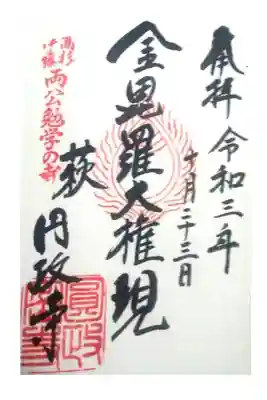 奉拝 令和三年
十月二十三日
金毘羅大権現
萩 円政寺
高杉
伊藤 両公勉学の寺
圓政寺